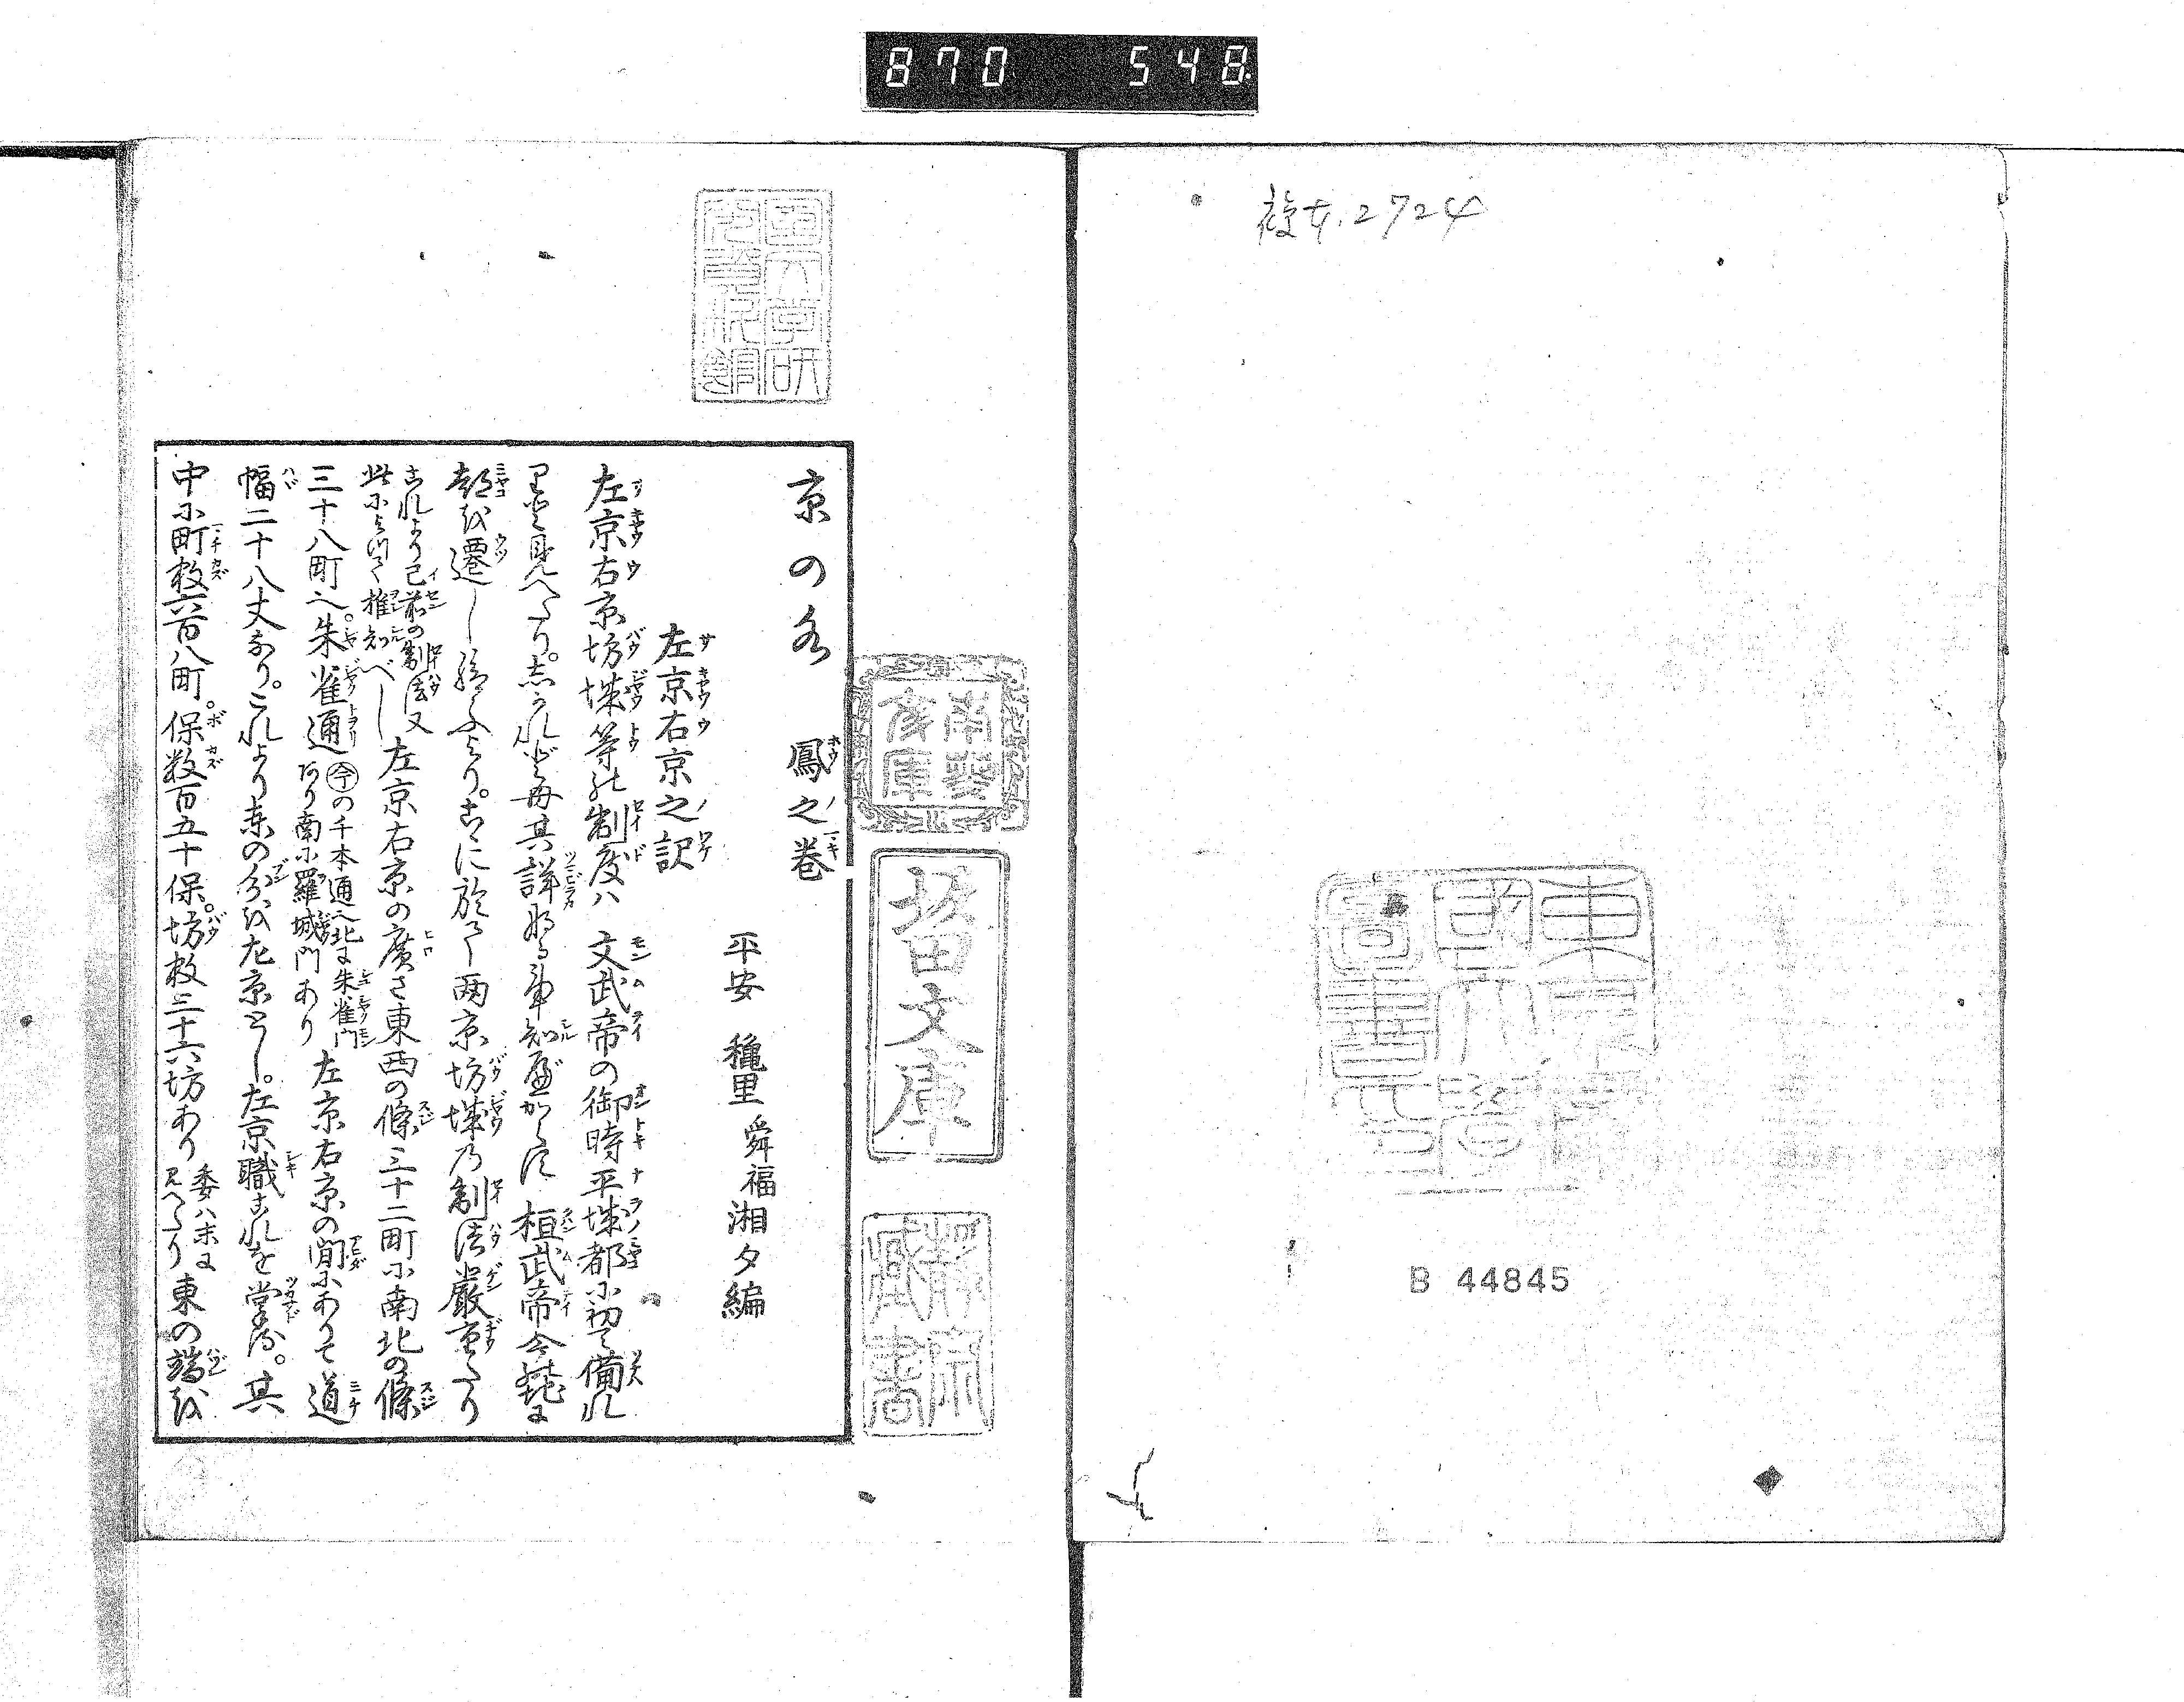 870 548
複女.2724
B 44845
堀田文庫
京の水 鳳之巻
平安 穐里舜福湘夕編
左京右京之訳
左京右京坊城等の制度ハ 文武帝の御時平城都に初て備れ
りと見へたり。しかれども其詳なる事知べからず 桓武帝今の地に
都を遷し給ふより。こゝに於て両京坊城乃制法厳重たり
これより已前の制法又
此によりて推知べし
左京右京の廣さ東西の條三十二町に南北の條
三十八町也。朱雀通
今の千本通也北に朱雀門
あり南に羅城門あり
左京右京の間にありて道
幅二十八丈なり。これより東の分を左京とし。左京職これを掌る。其
中に町数六百八町。保数百五十保。坊数三十六坊あり
委ハ末に
見へたり
東の端を